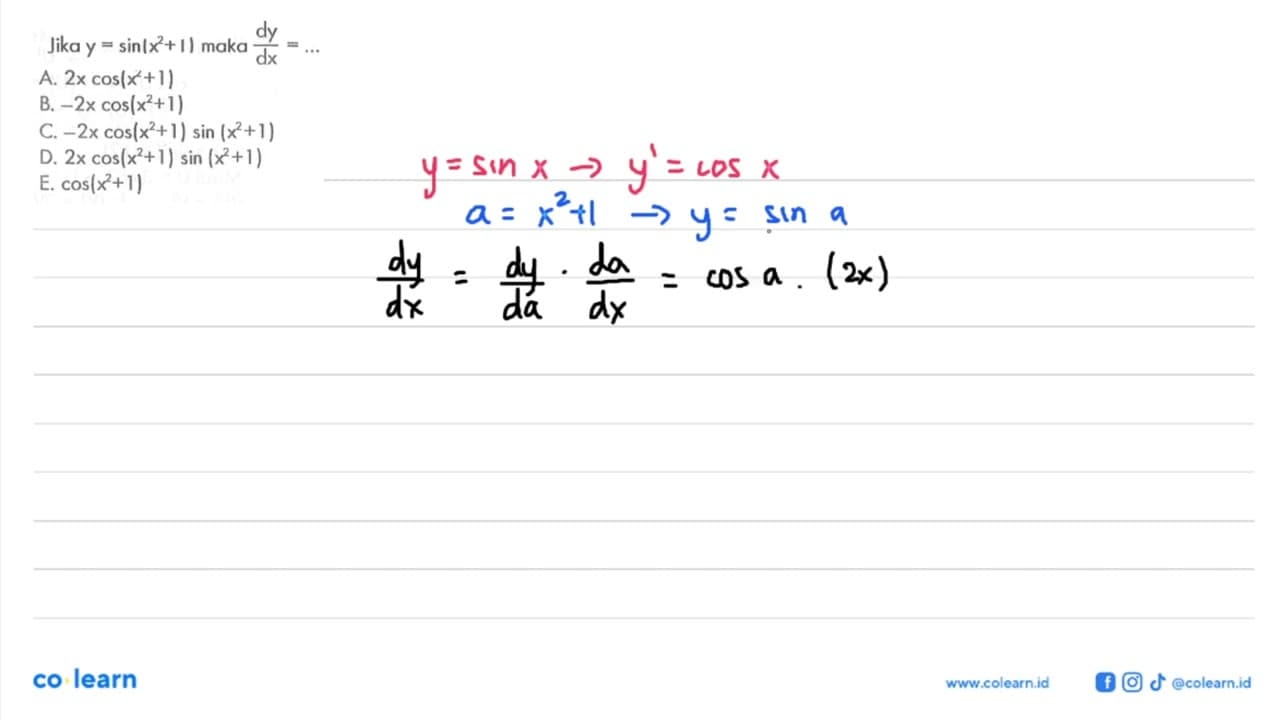 Jika y = sin(x²+1) maka dy/dx = ...
A. 2x cos(x²+1)
B. –2x cos(x²+1)
C. –2x cos(x²+1) sin (x²+1)
D. 2x cos(x²+1) sin (x²+1)
E. cos(x²+1)
y = sin x → y' = cos x
a = x²+1 → y = sin a
dy/dx = dy/da · da/dx = cos a . (2x)
co learn
www.colearn.id
@colearn.id